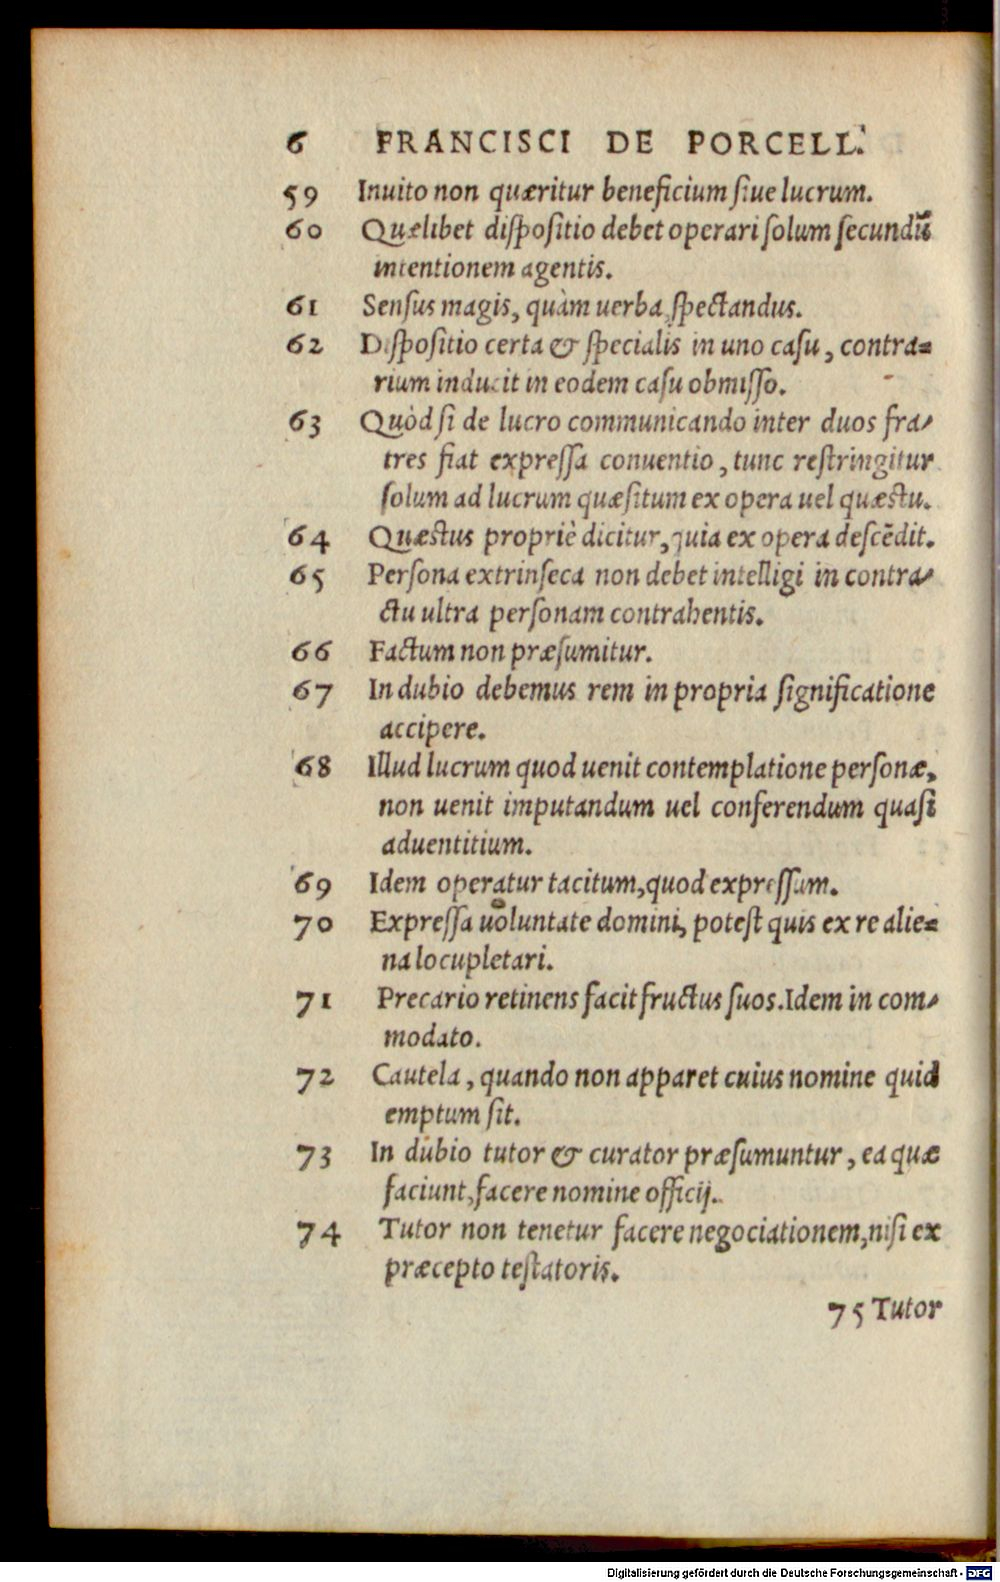 6 FRANCISCI DE PORCELL.
59 Inuito non quæritur beneficium siue lucrum.
60 Quælibet dispositio debet operari solum secundũ
intentionem agentis.
61 Sensus magis, quàm uerba, spectandus.
62 Dispositio certa & specialis in uno casu, contra-
rium inducit in eodem casu obmisso.
63 Quòd si de lucro communicando inter duos fra-
tres fiat expressa conuentio, tunc restringitur
solum ad lucrum quæsitum ex opera uel quæstu.
64 Quæstus propriè dicitur, quia ex opera descẽdit.
65 Persona extrinseca non debet intelligi in contra-
ctu ultra personam contrahentis.
66 Factum non præsumitur.
67 In dubio debemus rem in propria significatione
accipere.
68 Illud lucrum quod uenit contemplatione personæ,
non uenit imputandum uel conferendum quasi
aduentitium.
69 Idem operatur tacitum, quod expressum.
70 Expressa uoluntate domini, potest quis ex re alie-
na locupletari.
71 Precario retinens facit fructus suos. Idem in com-
modato.
72 Cautela, quando non apparet cuius nomine quid
emptum sit.
73 In dubio tutor & curator præsumuntur, ea quæ
faciunt, facere nomine officij.
74 Tutor non tenetur facere negociationem, nisi ex
præcepto testatoris.
75 Tutor
Digitalisierung gefördert durch die Deutsche Forschungsgemeinschaft - DFG